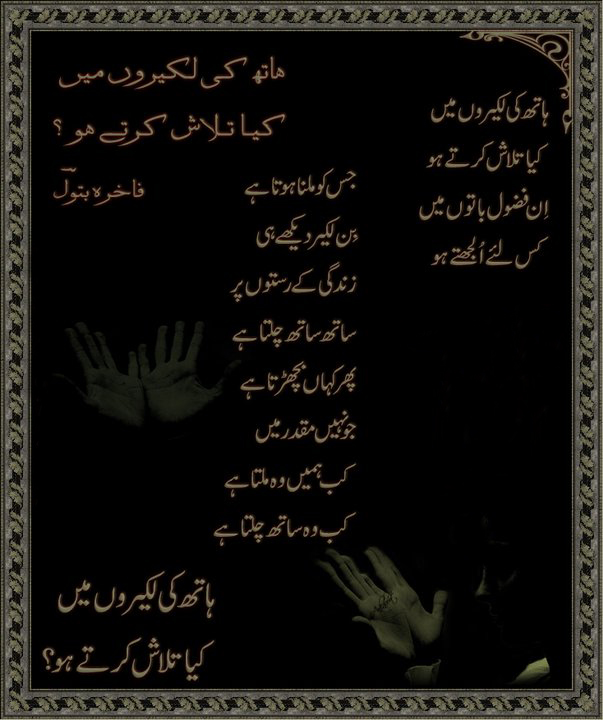 ہاتھ کی لکیروں میں
کیا تلاش کرتے ہو ؟
فاخرہ بتول
ہاتھ کی لکیروں میں
کیا تلاش کرتے ہو
اِن فضول باتوں میں
کس لئے اُلجھتے ہو
جس کو ملنا ہوتا ہے
بِن لکیر دیکھے ہی
زندگی کے رستوں پر
ساتھ ساتھ چلتا ہے
پھر کہاں بچھڑتا ہے
جو نہیں مقدر میں
کب ہمیں وہ ملتا ہے
کب وہ ساتھ چلتا ہے
ہاتھ کی لکیروں میں
کیا تلاش کرتے ہو؟